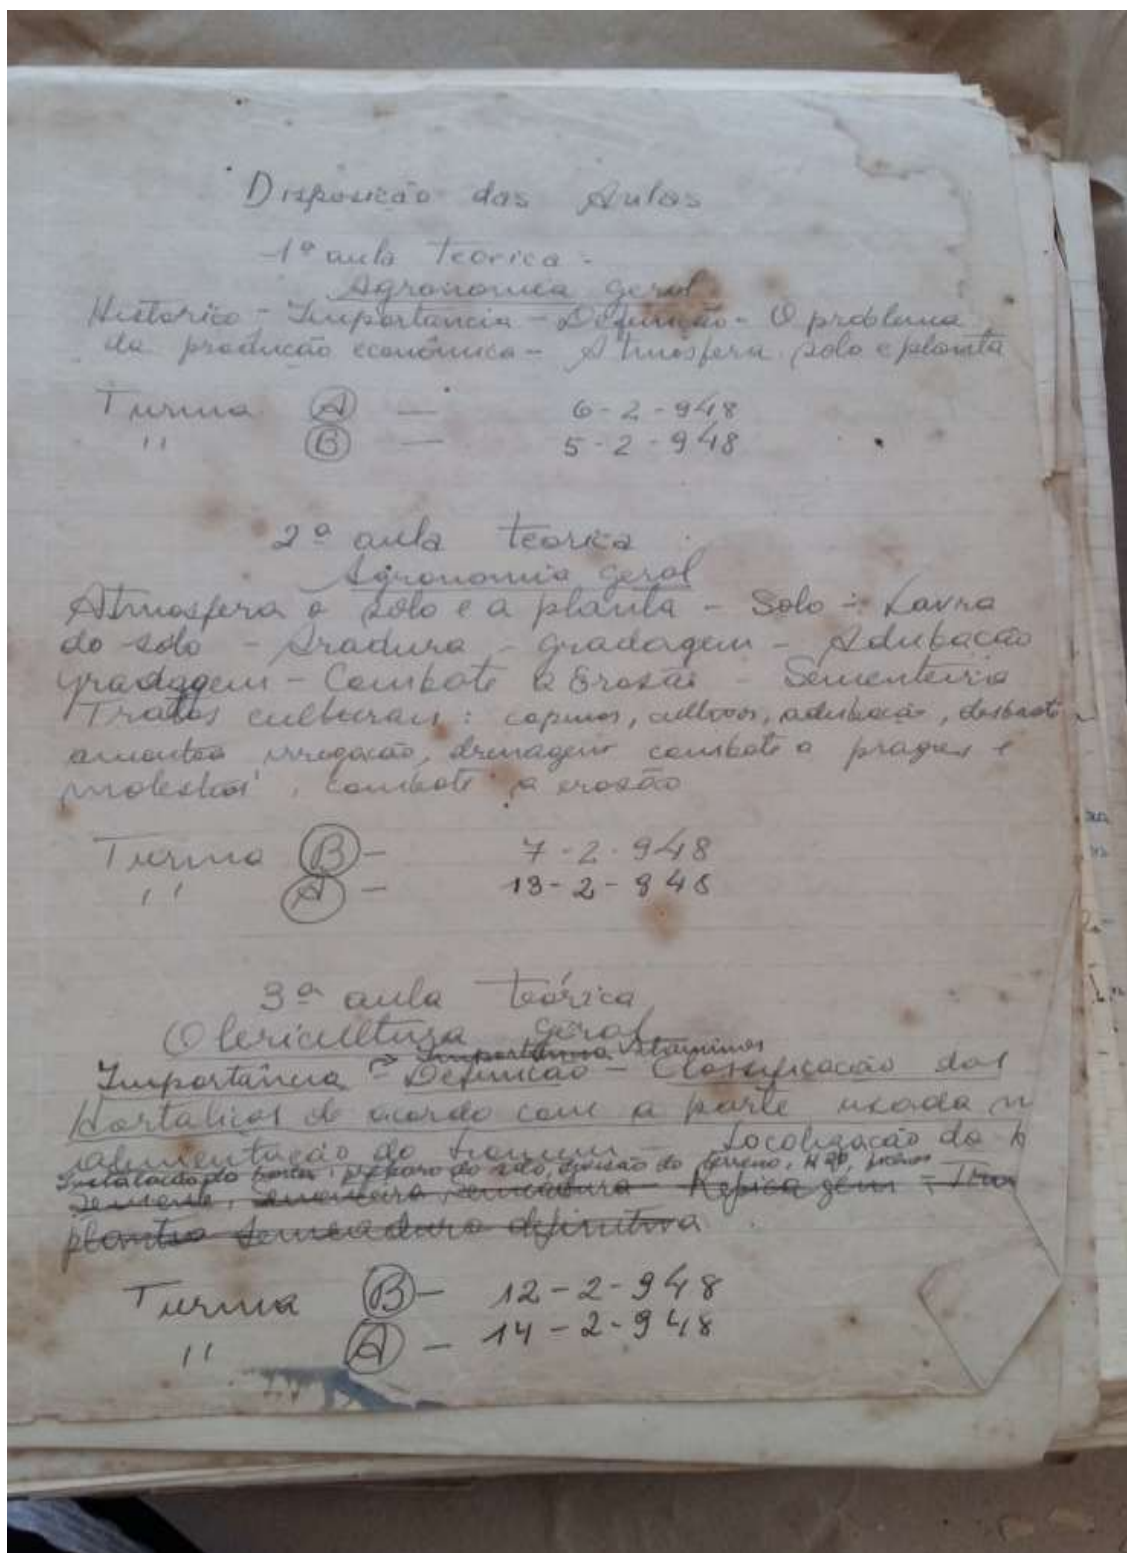 Disposição das Aulas
1ª aula teorica -
Agronomia geral
Historico - Importancia - Definição - O problema
da produção econômica - Atmosfera, solo e planta
Turma (A) — 6-2-948
" (B) — 5-2-948
2ª aula teorica
Agronomia geral
Atmosfera o solo e a planta - Solo - Lavra
do solo - Aradura - gradagem - Adubação
gradagem - Combate a Erosão - Sementeira
Tratos culturais: capinas, cultivos, adubação, desbast
amentos irrigação, drenagem combate a pragas e
molestias, combate a erosão
Turma (B) - 7-2-948
" (A) - 13-2-948
3ª aula teórica
Olericultura geral
Importancia Vitaminas
Importância - Definição - Classificação das
Hortaliças de acordo com a parte usada n
alimentação do homem - Localização da h
Instalação da horta: preparo do solo, divisão do terreno, H20,
Semente, Sementeira, semeadura - Repicagem - Trans
plantio Semeadura definitiva
Turma (B) - 12-2-948
" (A) - 14-2-948